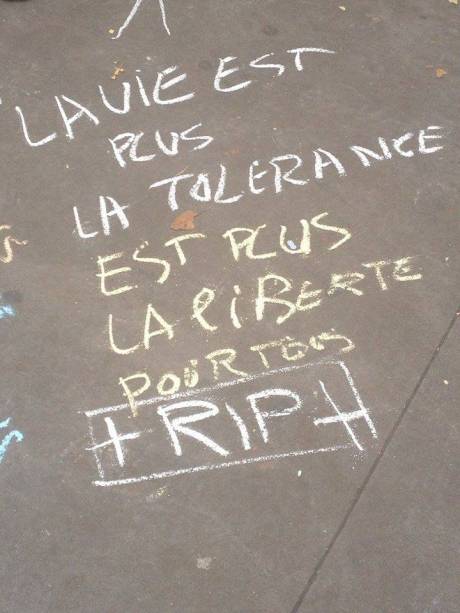 LA VIE EST
PLUS
LA TOLERANCE
EST PLUS
LA LiBERTE
POUR TOUS
+ RIP +